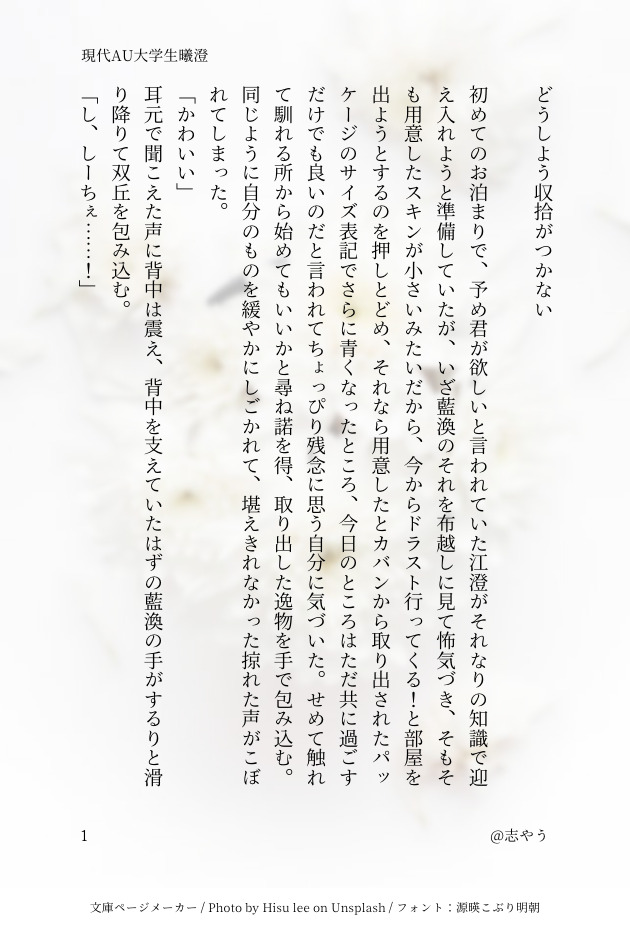 現代AU大学生曦澄
どうしよう収拾がつかない
初めてのお泊まりで、予め君が欲しいと言われていた江澄がそれなりの知識で迎
え入れようと準備していたが、いざ藍渙のそれを布越しに見て怖気づき、そもそ
も用意したスキンが小さいみたいだから、今からドラスト行ってくる！と部屋を
出ようとするのを押しとどめ、それなら用意したとカバンから取り出されたパッ
ケージのサイズ表記でさらに青くなったところ、今日のところはただ共に過ごす
だけでも良いのだと言われてちょっぴり残念に思う自分に気づいた。せめて触れ
て馴れる所から始めてもいいかと尋ね諾を得、取り出した逸物を手で包み込む。
同じように自分のものを緩やかにしごかれて、堪えきれなかった掠れた声がこぼ
れてしまった。
「かわいい」
耳元で聞こえた声に背中は震え、背中を支えていたはずの藍渙の手がするりと滑
り降りて双丘を包み込む。
「し、しーちぇ……！」
1
@志やう
文庫ページメーカー / Photo by Hisu lee on Unsplash / フォント：源暎こぶり明朝